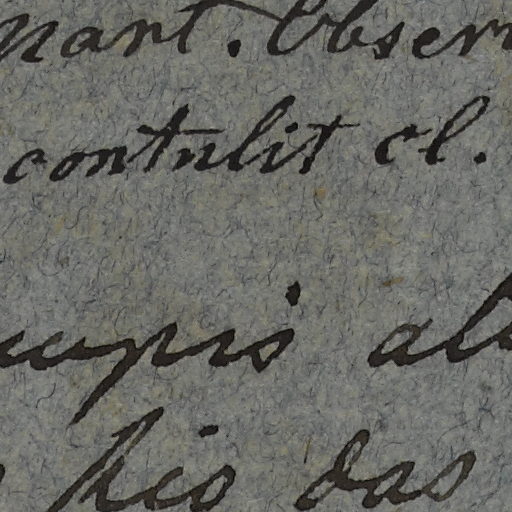 nart. Observ
contulit cl.
cupis all
his das